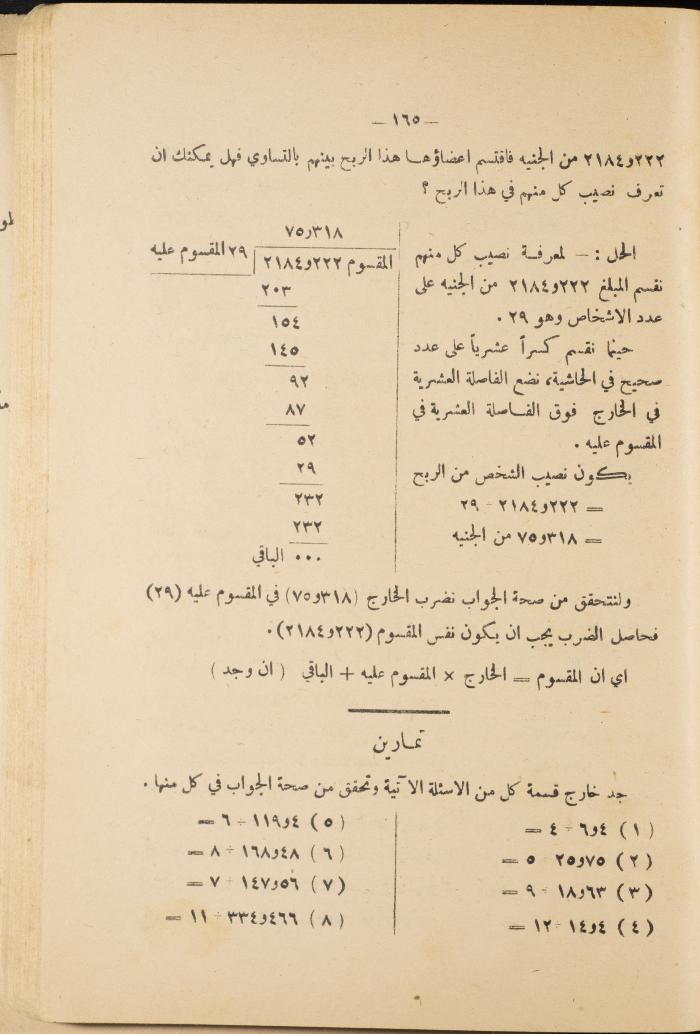 — ١٦٥ —
٢١٨٤و٢٢٢ من الجنيه فاقتسم اعضاؤها هذا الربح بينهم بالتساوي فهل يمكنك ان
تعرف نصيب كل منهم في هذا الربح ؟
الحل : — لمعرفة نصيب كل منهم
نقسم المبلغ ٢١٨٤و٢٢٢ من الجنيه على
عدد الاشخاص وهو ٢٩ .
حينما نقسم كسراً عشرياً على عدد
صحيح في الحاشية، نضع الفاصلة العشرية
في الخارج فوق الفاصلة العشرية في
المقسوم عليه .
يكون نصيب الشخص من الربح
= ٢١٨٤و٢٢٢ ÷ ٢٩
= ٧٥و٣١٨ من الجنيه
٧٥و٣١٨
المقسوم ٢١٨٤و٢٢٢ | ٢٩ المقسوم عليه
٢٠٣
١٥٤
١٤٥
٩٢
٨٧
٥٢
٢٩
٢٣٢
٢٣٢
٠٠٠ الباقي
ولنتحقق من صحة الجواب نضرب الخارج (٧٥و٣١٨) في المقسوم عليه (٢٩)
فحاصل الضرب يجب ان يكون نفس المقسوم (٢١٨٤و٢٢٢).
اي ان المقسوم = الخارج × المقسوم عليه + الباقي ( ان وجد )
تمارين
جد خارج قسمة كل من الاسئلة الآتية وتحقق من صحة الجواب في كل منها .
( ١ ) ٦و٤ ÷ ٤ =
( ٢ ) ٢٥و٧٥ ÷ ٥ =
( ٣ ) ١٨و٦٣ ÷ ٩ =
( ٤ ) ١٤و٤ ÷ ١٢ =
( ٥ ) ١١٩و٤ ÷ ٦ =
( ٦ ) ١٦٨و٤٨ ÷ ٨ =
( ٧ ) ١٤٧و٥٦ ÷ ٧ =
( ٨ ) ٣٣٤و٤٦٦ ÷ ١١ =